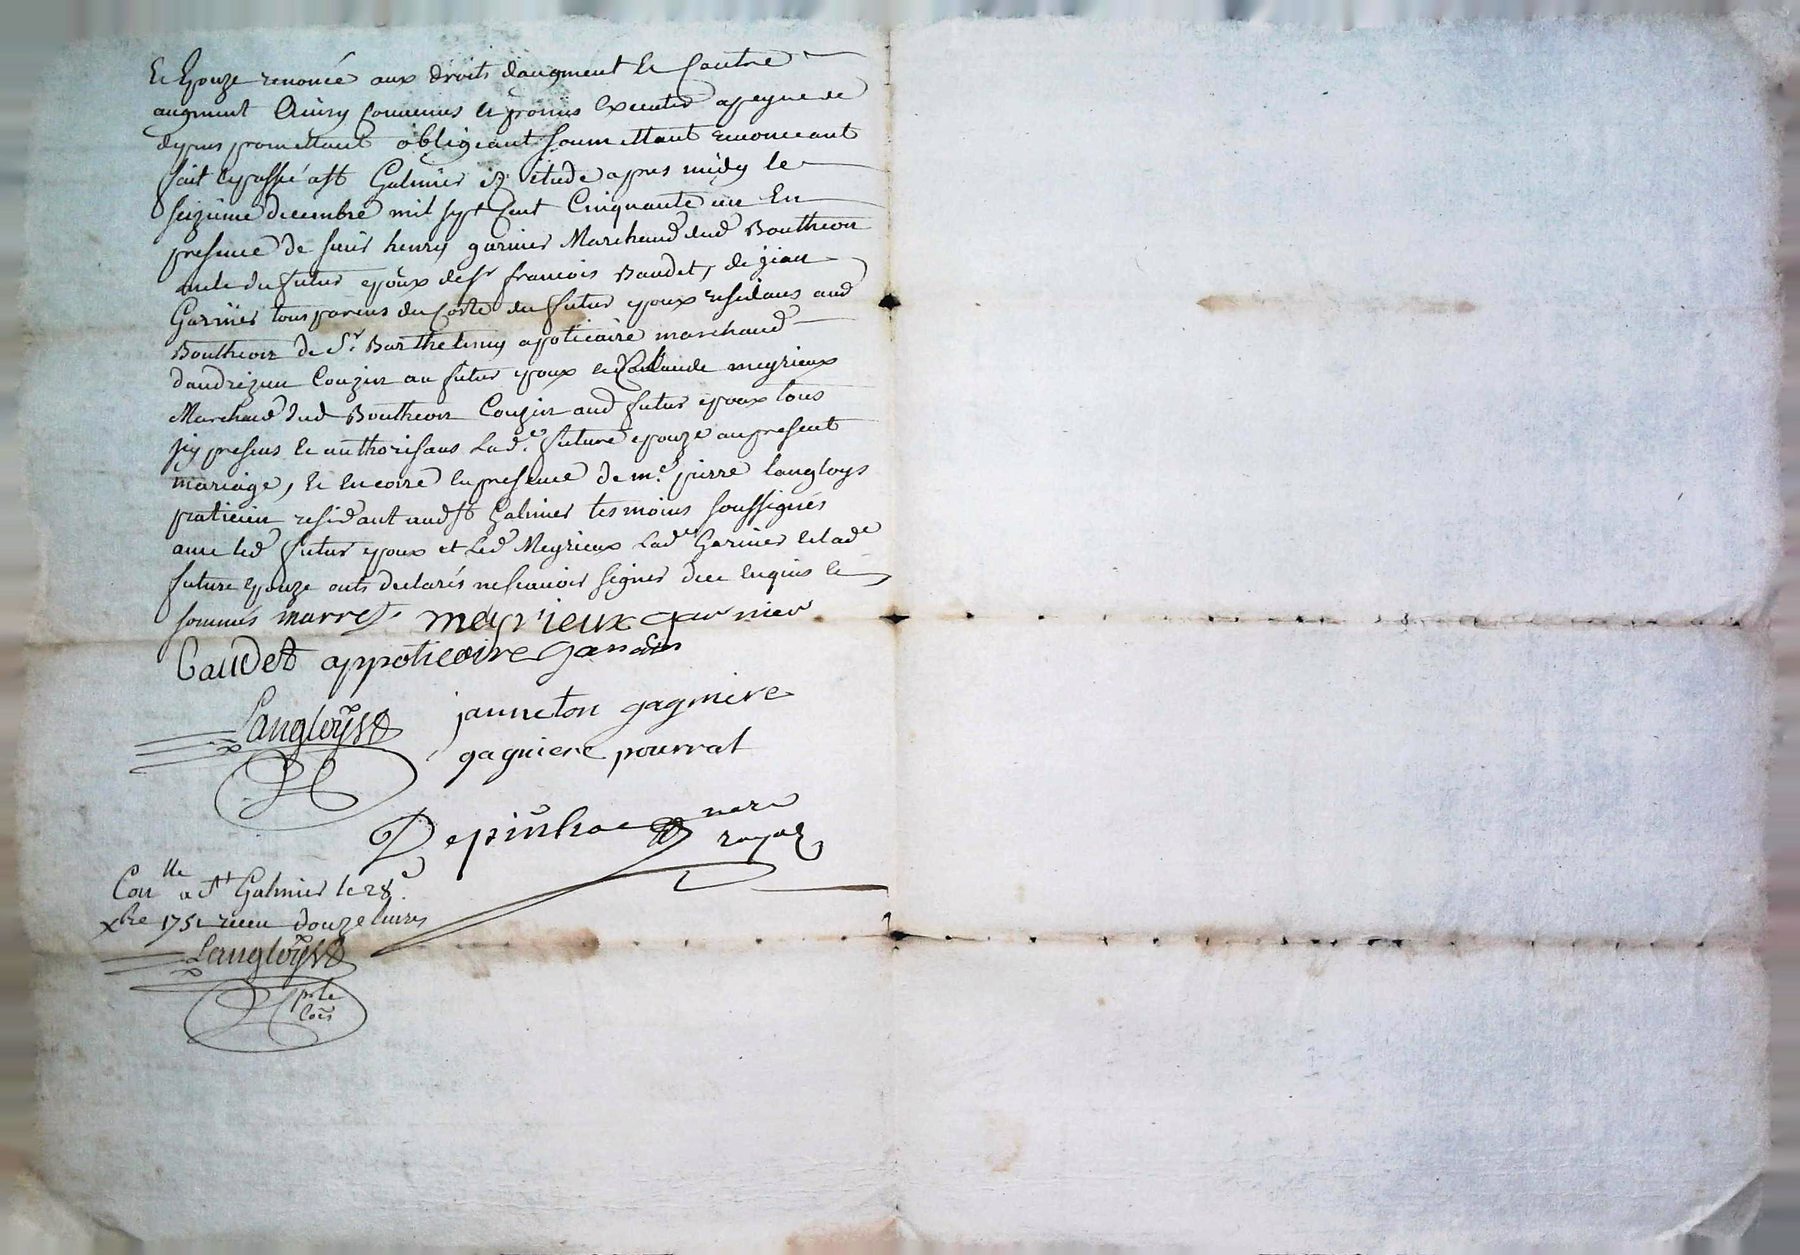 et Epouze renoncé aux droits daugment et Contre
augment Ainsy Convenus et promis Executer apeyne de
depens promettant obligeant soumettant renonceant
fait et passé a St Galmier ez etude apres midy le
seizieme decembre mil sept Cent Cinquante un En
presence de sieur henry garnier Marchand dud Boutheon
oncle du futur epoux de sr francois Baudet, de jean
Garnier tous parens du Costé du futur epoux residans aud
Boutheon de Sr Barthelemy apoticaire marchand
dandrezieu Couzin au futur epoux et Claude meyrieux
Marchand dud Boutheon Couzin aud futur epoux tous
icy presens et authorisans lad.e future epouze au present
mariage, et encore en presence de me pierre langloys
praticien residant aud st Galmier tesmoins soussignés
avec led futur epoux et Led Meyrieux Lade Garnier et lade
future Epouze onts declarés ne scavoir signer de ce enquis et
sommés marret meyrieux garnier
Baudet appoticaire
Langloys janneton gagniere
gagniere pourrat
Depinhac nore
royal
Conlle a St Galmier le 28e
xbre 1751 receu douze livres
Langloys
pr le
Cois